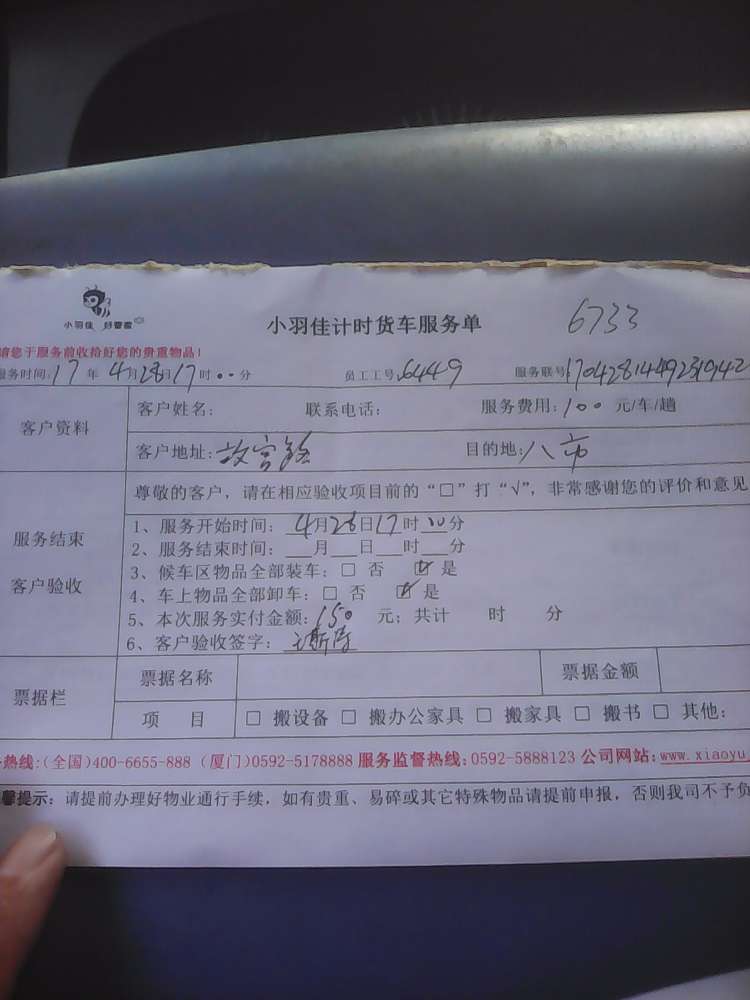 小羽佳 好管家
小羽佳计时货车服务单 6733
请您于服务前收拾好您的贵重物品！
服务时间: 17 年 4月28日17时00分 员工工号: 6449 服务联号
客户资料
客户姓名: 联系电话: 服务费用: 100 元/车/趟
客户地址: 故宫路 目的地: 八市
服务结束
客户验收
尊敬的客户，请在相应验收项目前的“□”打“√”，非常感谢您的评价和意见
1、服务开始时间: 4月28日17时00分
2、服务结束时间: ___月___日___时___分
3、候车区物品全部装车: □ 否 ☑ 是
4、车上物品全部卸车: □ 否 ☑ 是
5、本次服务实付金额: 150 元; 共计 时 分
6、客户验收签字:
票据栏
票据名称 票据金额
项 目 □ 搬设备 □ 搬办公家具 □ 搬家具 □ 搬书 □ 其他:
热线:(全国)400-6655-888 (厦门)0592-5178888 服务监督热线:0592-5888123 公司网站:www.xiaoyu
馨提示: 请提前办理好物业通行手续，如有贵重、易碎或其它特殊物品请提前申报，否则我司不予负